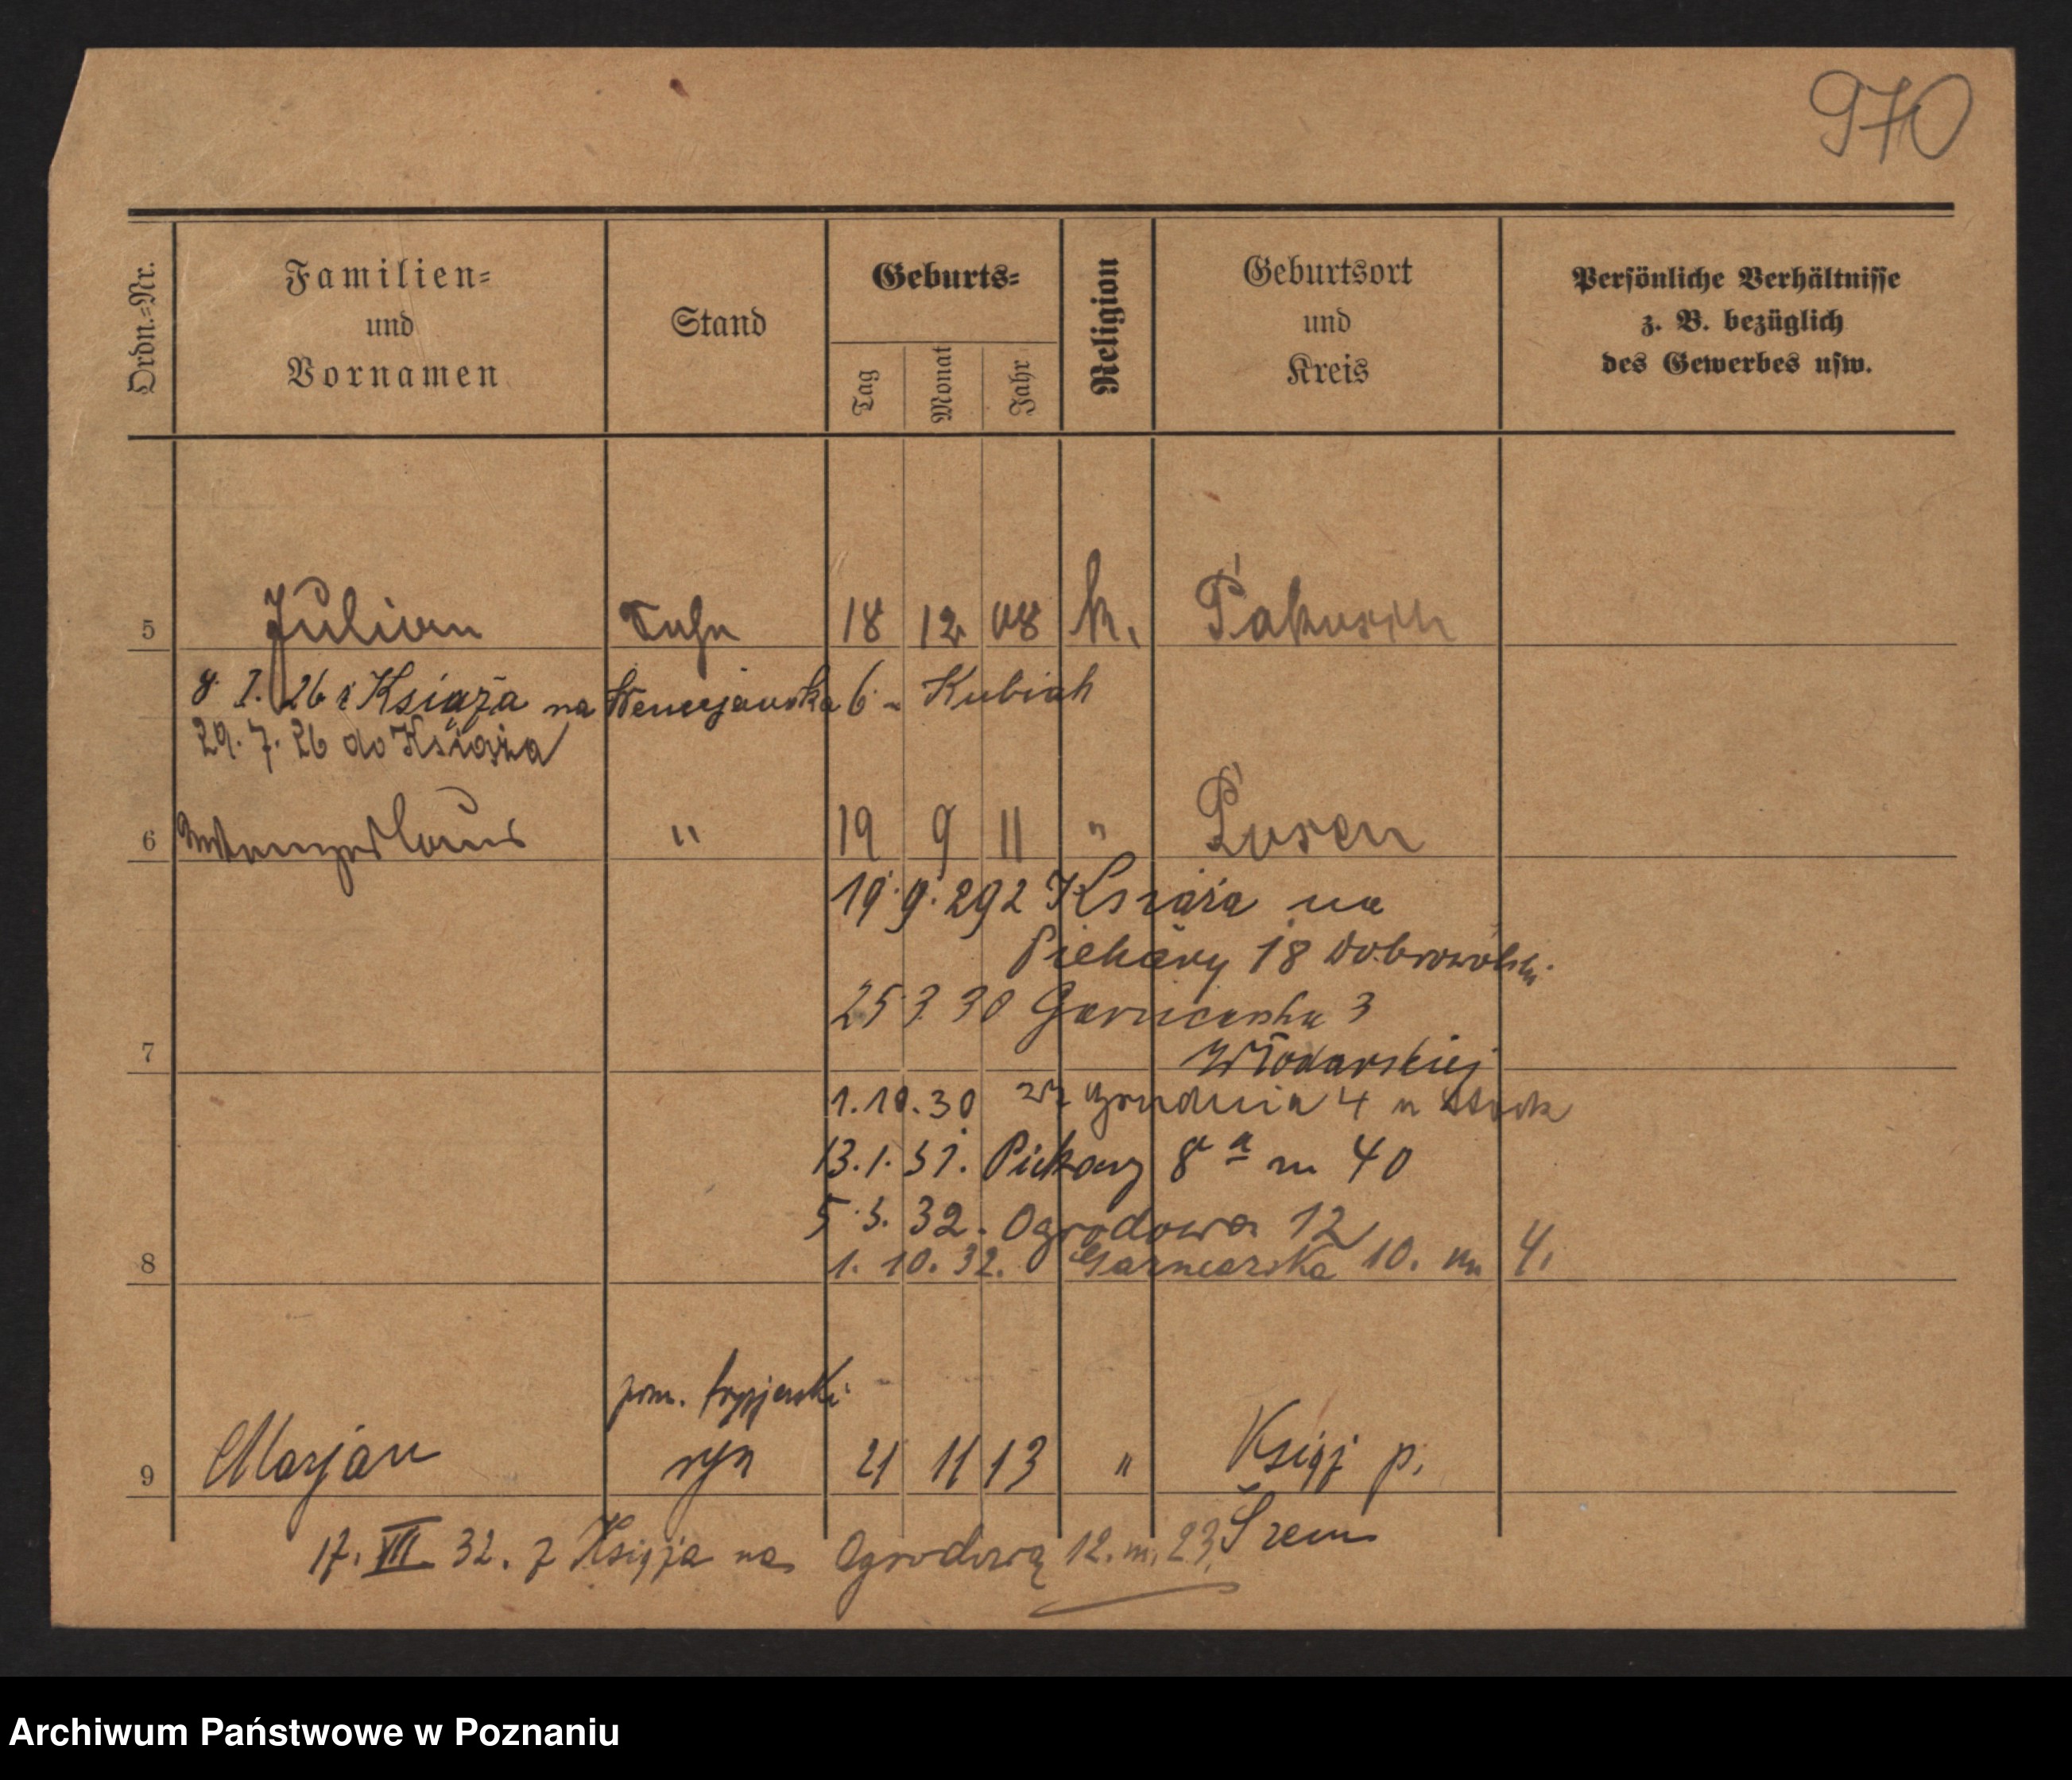 970
Ordn.-Nr.
Familien-
und
Vornamen
Stand
Geburts-
Tag
Monat
Jahr
Religion
Geburtsort
und
Kreis
Persönliche Verhältnisse
z. B. bezüglich
des Gewerbes usw.
5 Julian Sohn 18 12 08 k.
8. I. 26 z Książa na 6 - Kubiak
29. 7. 26 do Książa
6 " 19 9 11 " Posen
19.9.29 z Książa na
Piekary 18 Dobrowolski
25 3 30 Garncarska 3
7 Włodarskiej
1.10.30 27 Grudnia 4
13.1.31. Piekary 8 a m 40
5.3.32. Ogrodowa 12
8 1. 10. 32. Garncarska 10. m 4.
pom.
9 Marjan syn 21 11 13 " Książ p.
Śrem
17. VII 32. z Książa na Ogrodową 12. m. 23.
Archiwum Państwowe w Poznaniu